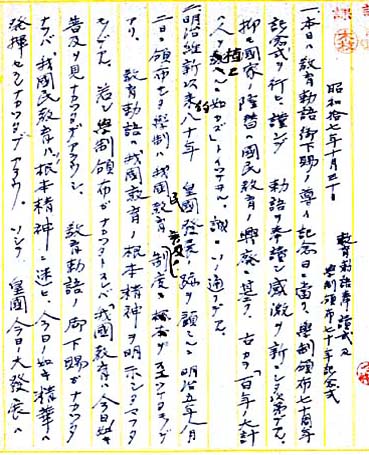 昭和拾七年十月三十日
教育勅語奉讀式及
学制頒布七十年記念式
一、本日ハ教育勅語御下賜ノ尊イ記念日ニ當リ、學制頒布七十周年
記念式ヲ行ヒ、謹ンデ 勅語ヲ奉讀シ感激ヲ新ニシタ次第デアル、
抑モ國家ノ隆替ハ國民教育ノ興廢ニ基ク、古カラ「百年ノ計ハ
人ヲ植ウルニ如カズ」トイハレテヰルガ、誠ニソノ通リデアル。
二、明治維新以来約八十年 皇國發展ノ跡ヲ顧ミルニ明治五年八月
二日ニ頒布セラレタ學制ハ我國民教育ノ制度ノ
アリ、 教育勅語ハ我國教育ノ根本精神ヲ明示シタマフタ
モノデアル。若シ學制頒布ガナカツタトスレバ我國教育ハ今日ノ如キ
普及ヲ見ナカツタデアラウシ、 教育勅語ノ御下賜ガナカツタ
ナラバ、我國民教育ハ根本精神ニ迷ヒ、今日ノ如キ精華ヲ
發揮セシメナカツタデアラウ。ソシテ 皇國今日ノ大發展ヘ